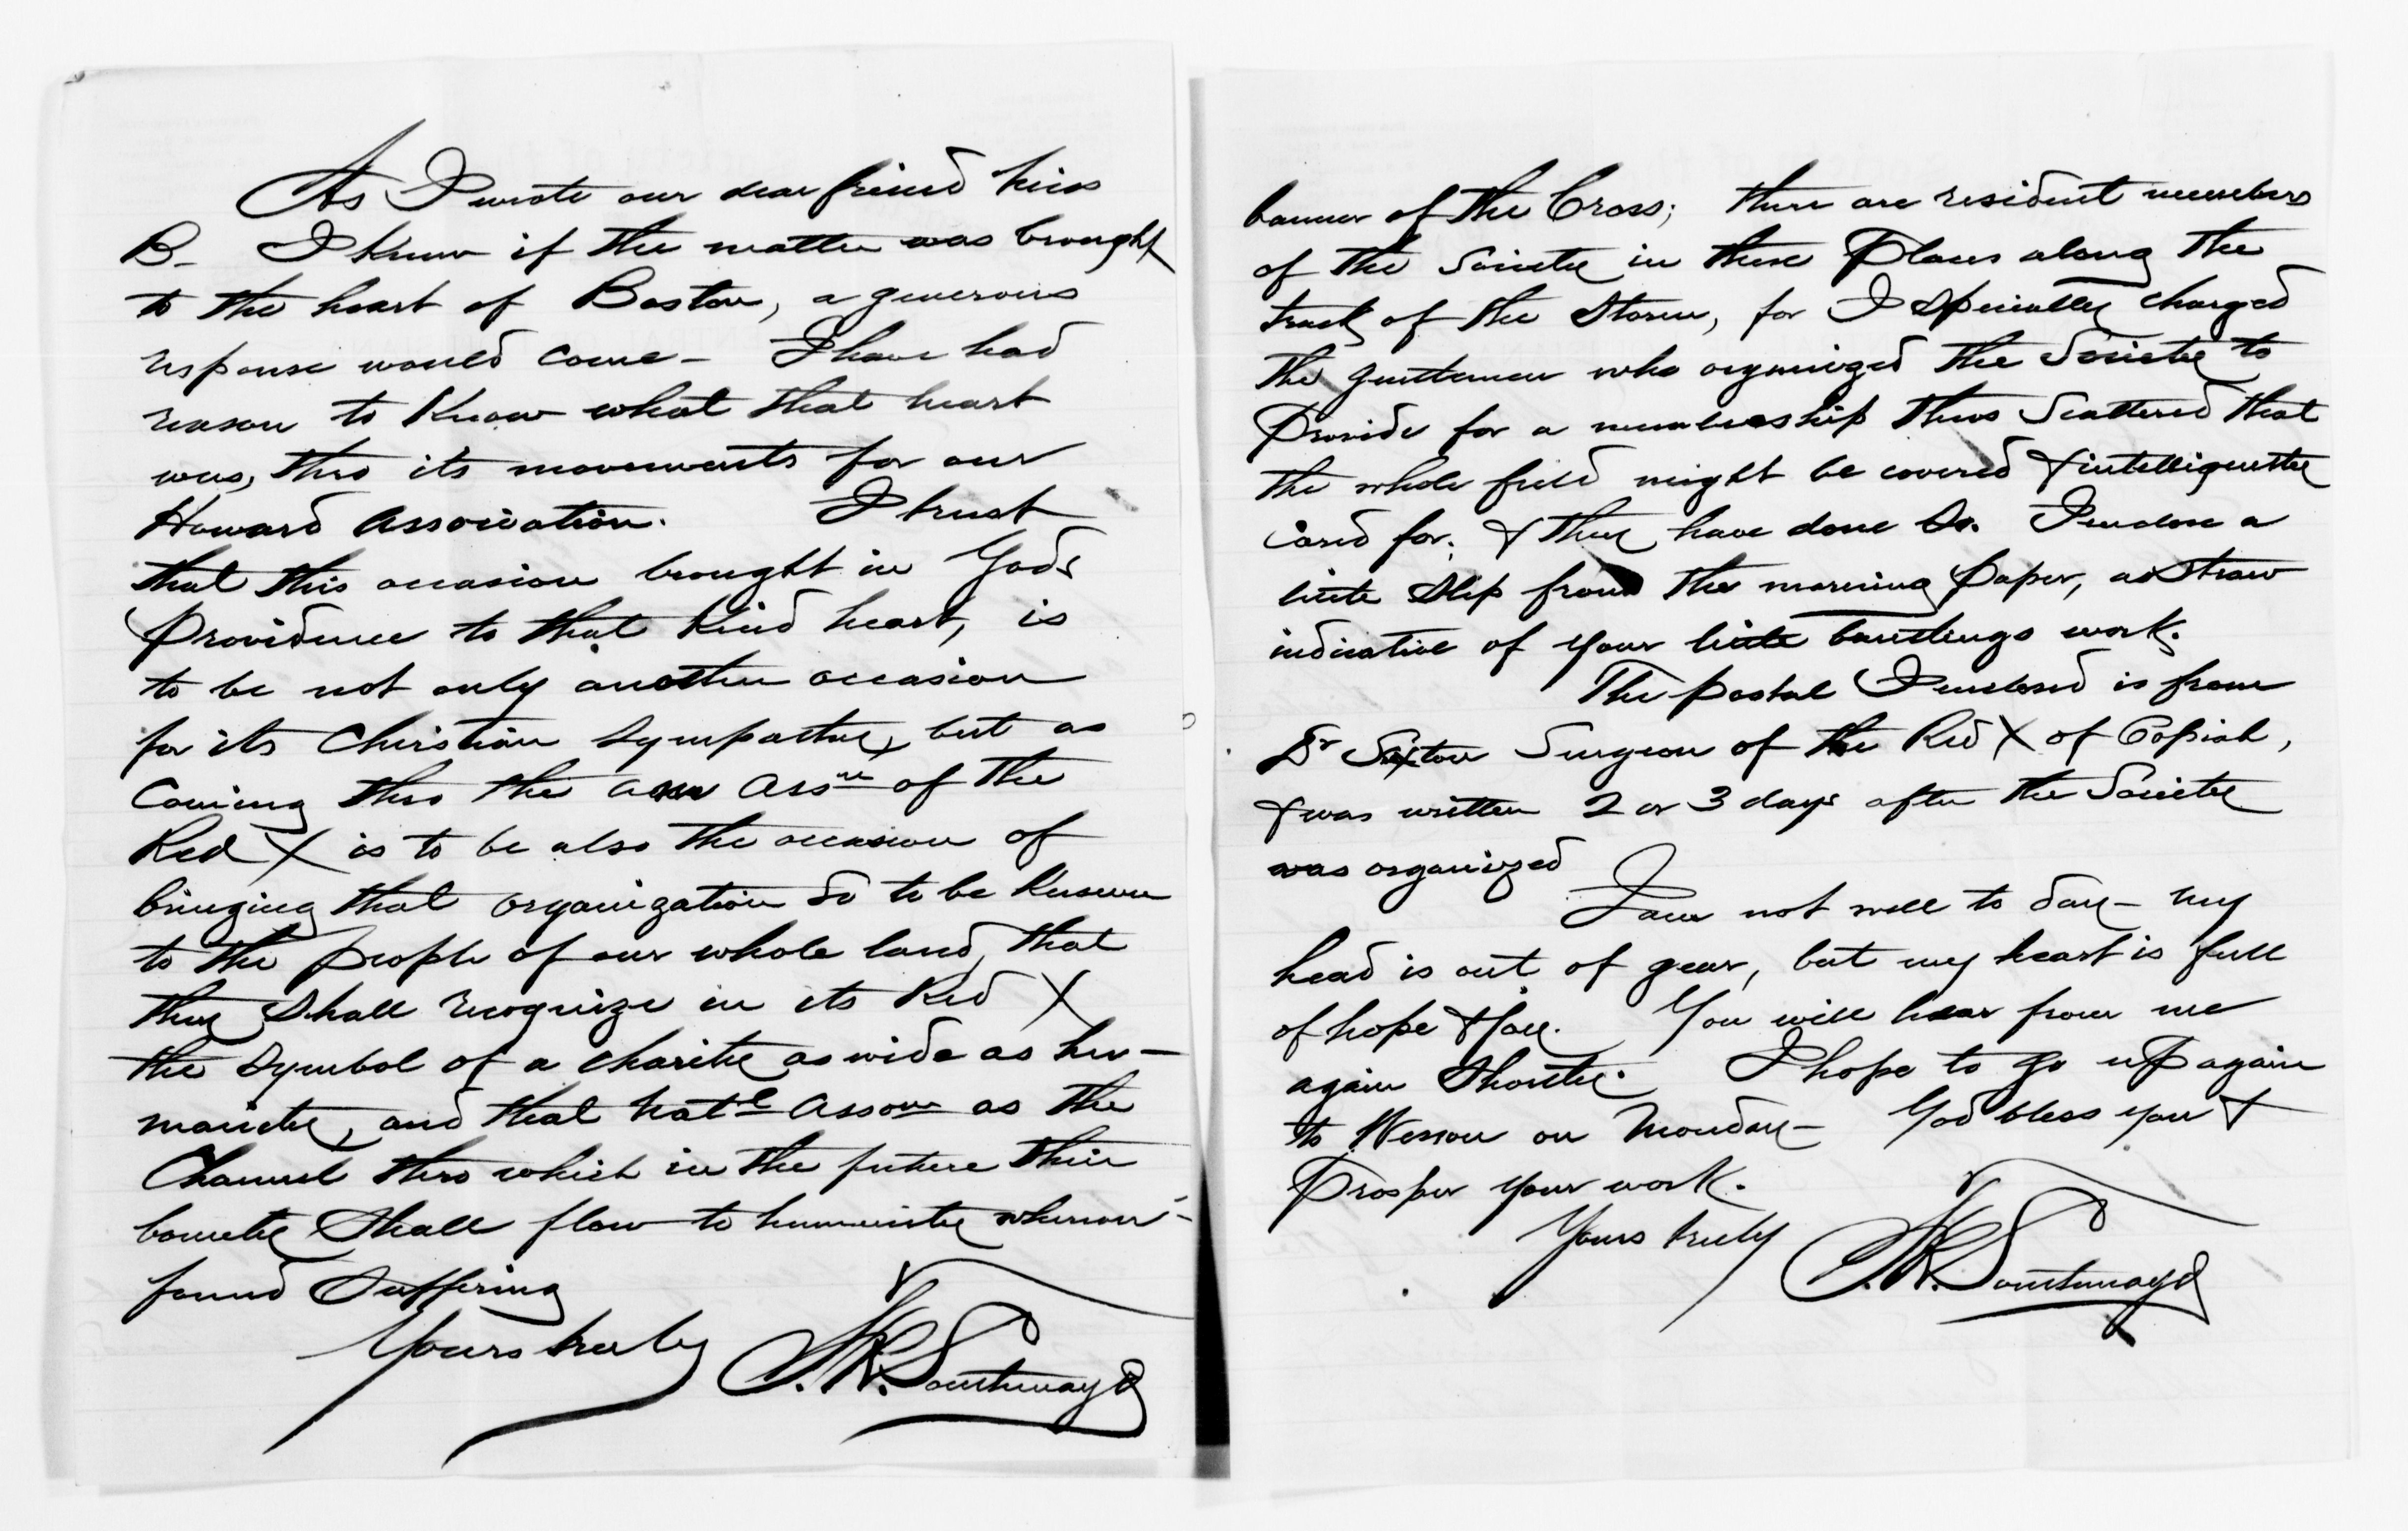 As I wrote our dear friend Miss
B– I knew if the matter was brought
to the heart of Boston, a generous
response would come – I have had
reason to know what that heart
was, thro its movements for our
Howard Association. I trust
that this occasion brought in Gods
Providence to that kind heart, is
to be not only another occasion
for its Christian Sympathy, but as
Coming thro the Am Assn of the
Red X is to be also the occasion of
bringing that organization so to be known
to the people of our whole land, that
they shall recognize in its Red X
the Symbol of a charity as wide as hu-
manity, and that Natl Asson as the
Channel thro which in the future their
bounty Shall flow to humanity whenever
found Suffering
Yours truly F.R. Southmayd
banner of the Cross; there are resident members
of the Society in these Places along the
track of the Storm, for I specially charged
the gentlemen who organized the Society to
Provide for a membership thus Scattered that
the whole field might be covered & intelligently
cared for, & they have done So. I enclose a
little Slip from the morning Paper, a straw
indicative of your little bantlings work.
The postal I enclosed is from
Dr Sexton Surgeon of the Red X of Copiah,
& was written 2 or 3 days after the Society
was organized
I am not well to day – my
head is out of gear, but my heart is full
of hope & joy. You will hear from me
again Shortly. I hope to go up again
to Wesson on Monday – God bless you &
Prosper your work.
Yours truly F.R. Southmayd